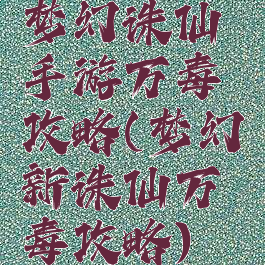 梦幻诛仙
手游万毒
攻略(梦幻
新诛仙万
毒攻略)